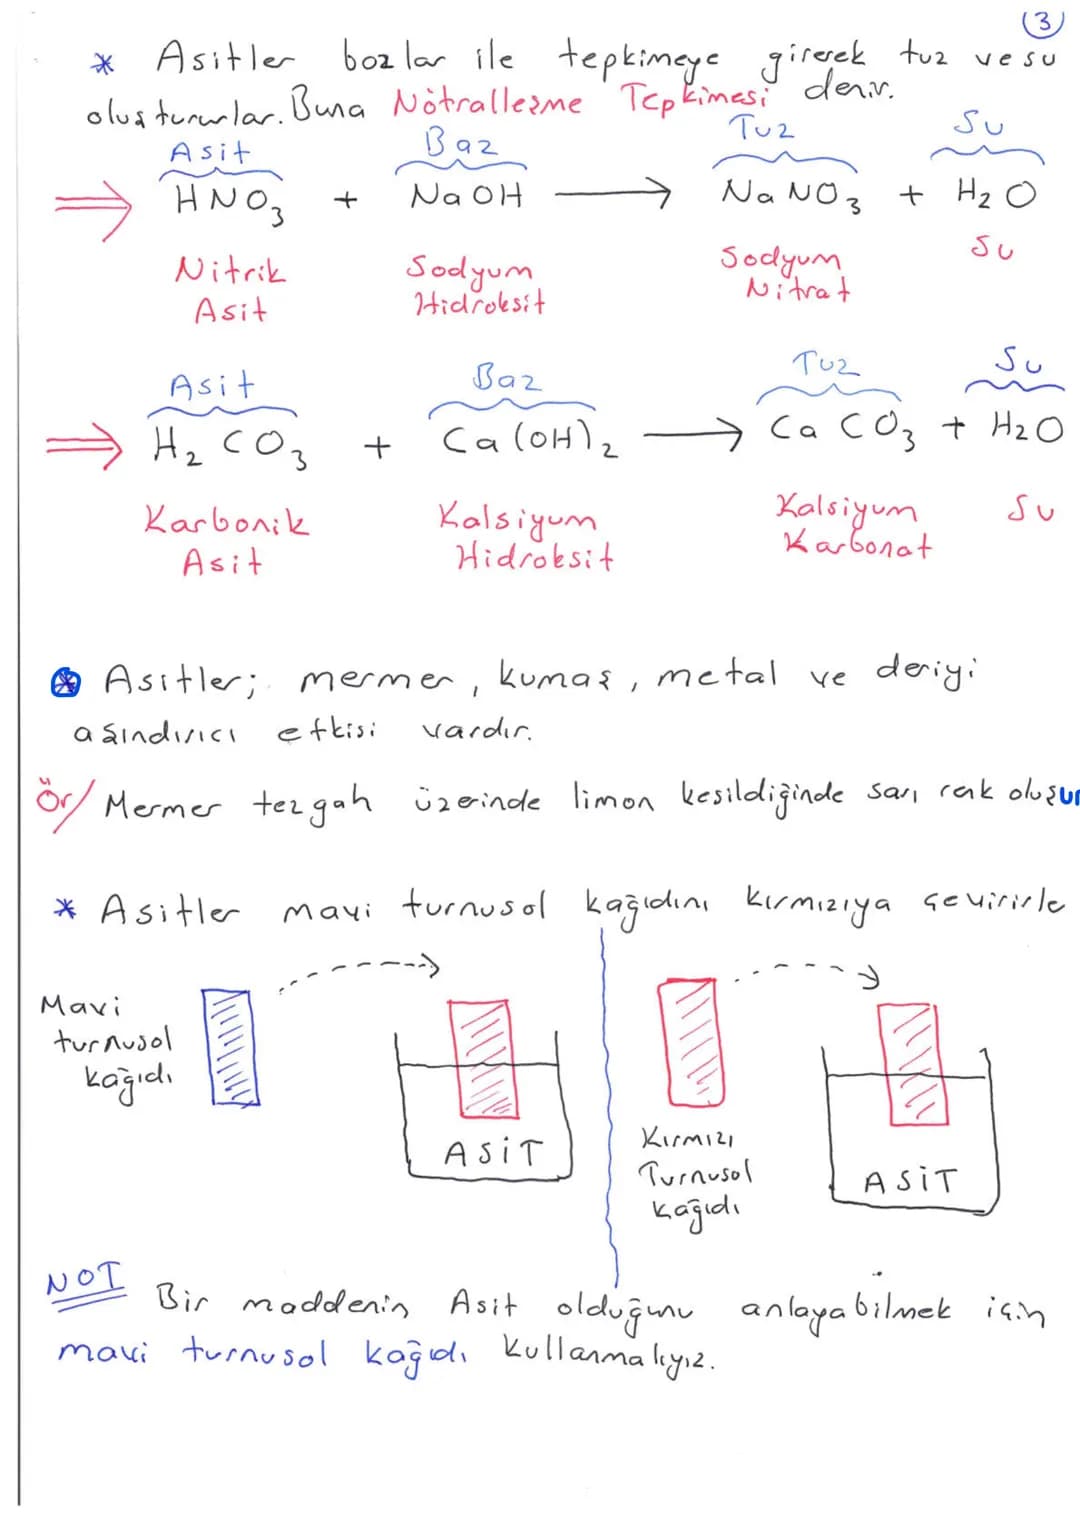 3
* Asitler bazlar ile tepkimeye girerek tuz ve su
oluştururlar. Buna Nötralleşme Tepkimesi denir.
Asit Baz Tuz Su
⇒ HNO₃ + NaOH → NaNO₃ + H₂O
Nitrik Asit Sodyum Hidroksit Sodyum Nitrat Su
Asit Baz Tuz Su
⇒ H₂CO₃ + Ca(OH)₂ → CaCO₃ + H₂O
Karbonik Asit Kalsiyum Hidroksit Kalsiyum Karbonat Su
* Asitler; mermer, kumaş, metal ve deriyi
aşındırıcı etkisi vardır.
Ör/ Mermer tezgah üzerinde limon kesildiğinde sarı renk oluşur
* Asitler mavi turnusol kağıdını kırmızıya çevirirle
Mavi
turnusol
kağıdı
ASİT
Kırmızı
Turnusol
kağıdı
ASİT
NOT Bir maddenin Asit olduğunu anlayabilmek için
mavi turnusol kağıdı kullanmalıyız.